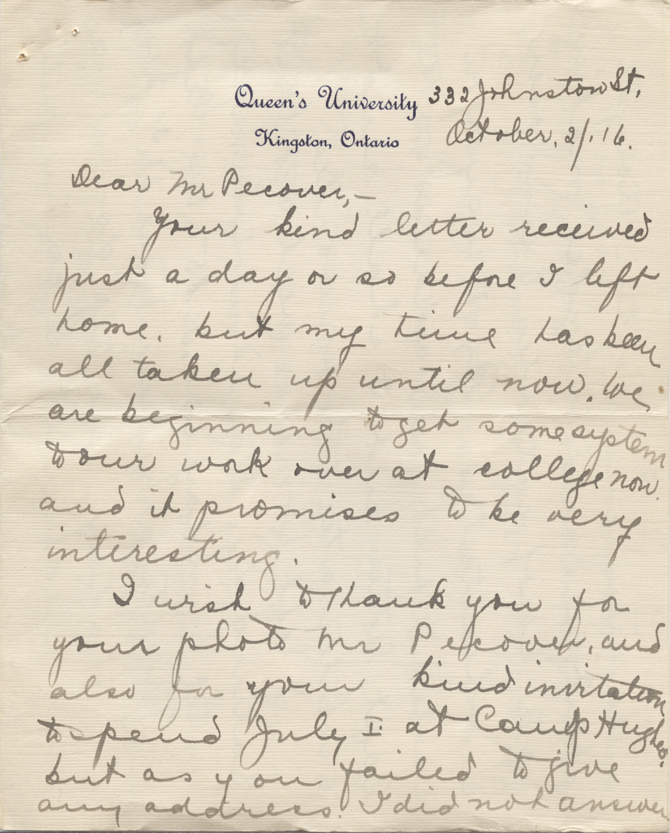 Queen's University 332 Johnston St,
Kingston, Ontario October, 2/.16.
Dear Mr Pecover,—
Your kind letter received
just a day or so before I left
home, but my time has been
all taken up until now. We
are beginning to get some system
to our work over at college now.
and it promises to be very
interesting.
I wish to thank you for
your photo Mr Pecover, and
also for your kind invitation
to spend July I at Camp Hughes.
but as you failed to give
any address. I did not answer